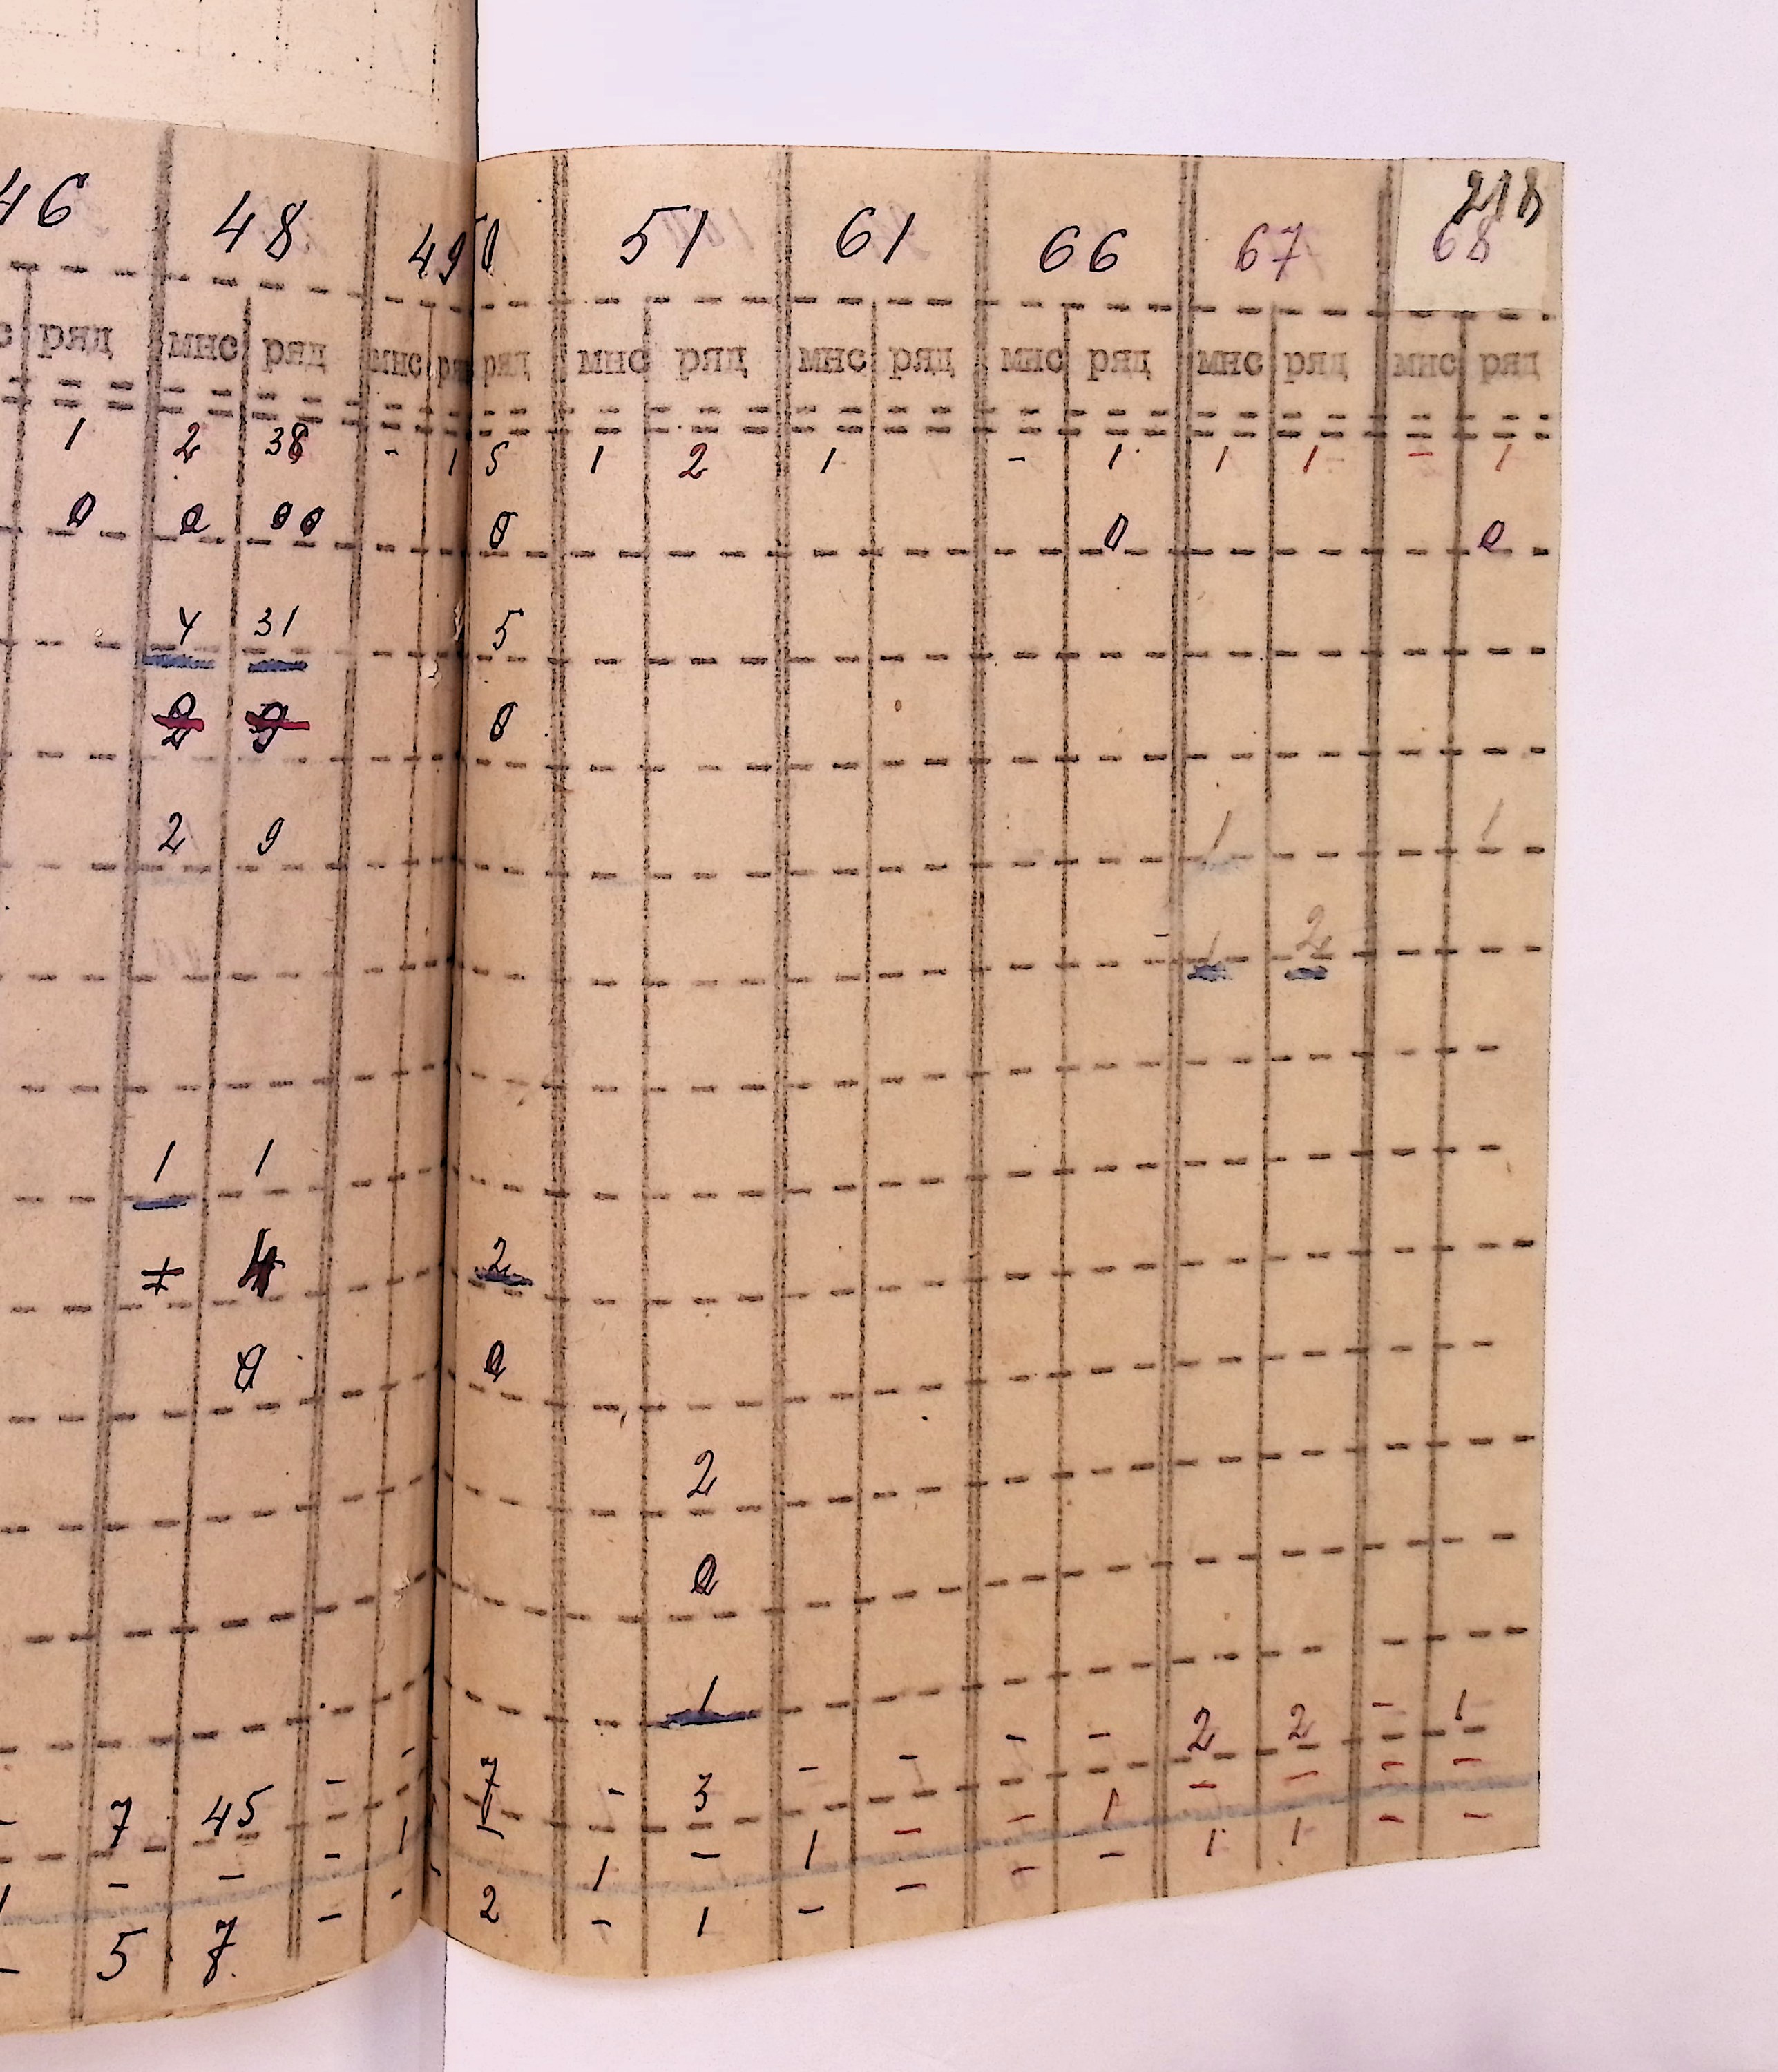 218
46 48 49 0 51 61 66 67 68
с ряд мнс ряд мнс ря ряд мнс ряд мнс ряд мнс ряд мнс ряд мнс ряд
1 2 38 - 1 5 1 2 1 - 1 1 1 - 1
0 0 00 0 0 0
4 31 5
0
2 9 1 1
1 2
1 1
2
0 0
2
0
1
- - - - 2 2 - 1
7 45 - 7 - 3 - - - 1 - - - -
- - - 1 1 1 - 1 - - - 1 1 - -
5 7 - - 2 - 1 -